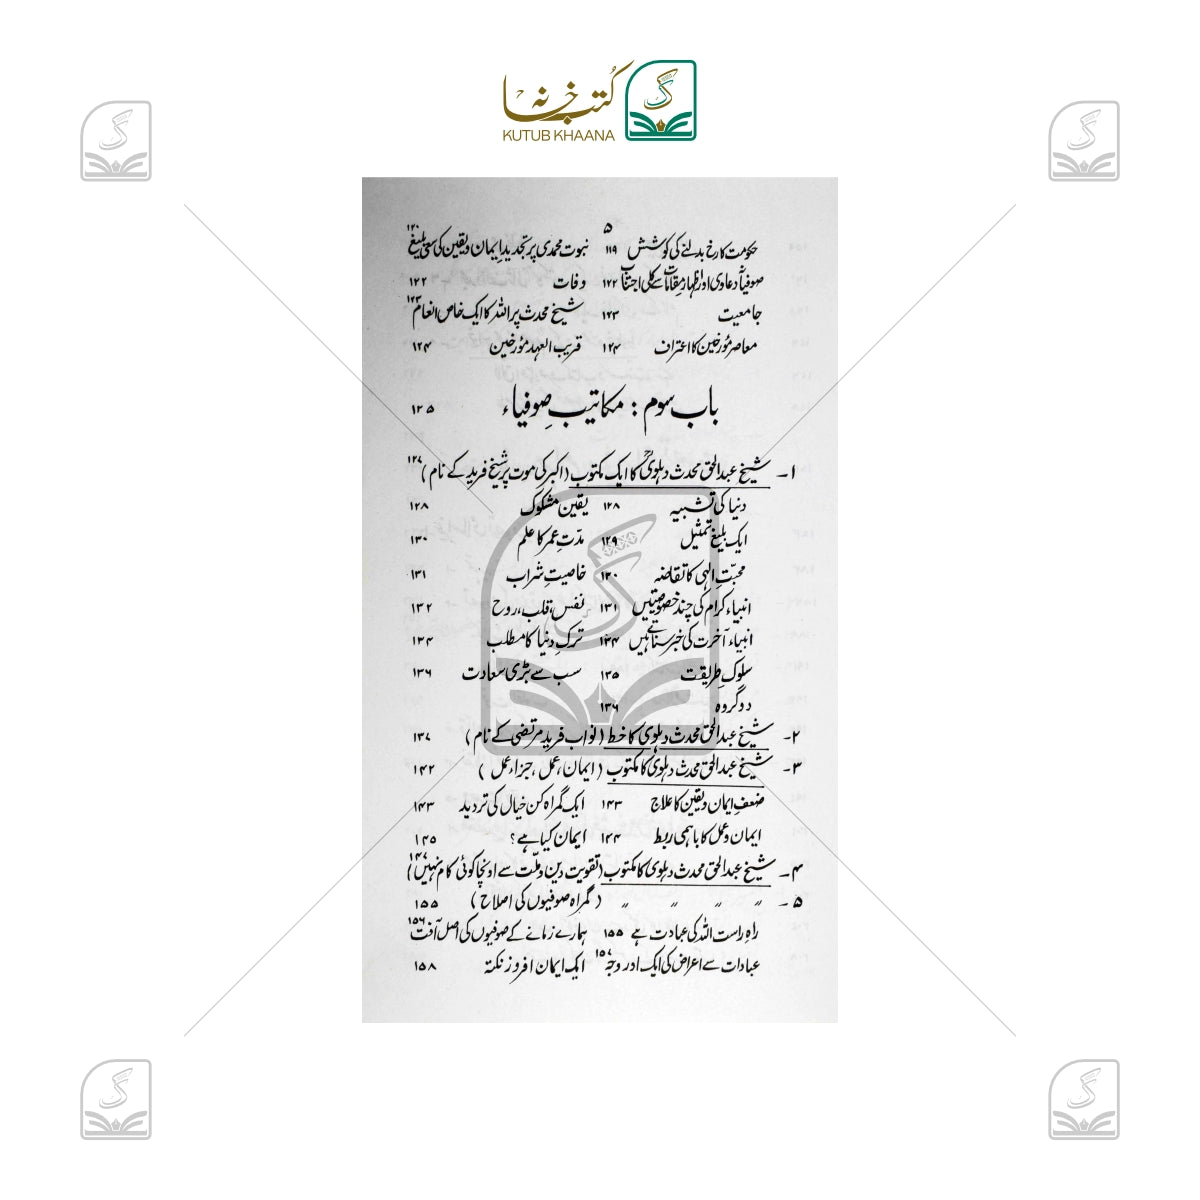 کتب خانہ
KUTUB KHAANA
۵
حکومت کا رخ بدلنے کی کوشش ۱۱۹ نبوت محمدی پر تجدید ایمان و یقین کی سعی بلیغ ۱۲۰
صوفیانہ دعاوی اور اظہار مقامات سے کلی اجتناب ۱۲۲ وفات ۱۲۲
جامعیت ۱۲۳ شیخ محدث پر اللہ کا ایک خاص انعام ۱۲۳
معاصر مؤرخین کا اعتراف ۱۲۴ قریب العہد مؤرخین ۱۲۴
باب سوم : مکاتیبِ صوفیاء ۱۲۵
۱- شیخ عبدالحق محدث دہلویؒ کا ایک مکتوب (اکبر کی موت پر شیخ فرید کے نام) ۱۲۷
دنیا کی تشبیہ ۱۲۸ یقین مشکوک ۱۲۸
ایک بلیغ تمثیل ۱۲۹ مدّتِ عمر کا علم ۱۳۰
محبّتِ الٰہی کا تقاضہ ۱۳۰ خاصیتِ شراب ۱۳۱
انبیاء کرام کی چند خصوصیتیں ۱۳۱ نفس، قلب، روح ۱۳۲
انبیاء آخرت کی خبر سناتے ہیں ۱۳۴ ترکِ دنیا کا مطلب ۱۳۴
سلوکِ طریقت ۱۳۵ سب سے بڑی سعادت ۱۳۶
دو گروہ ۱۳۶
۲- شیخ عبدالحق محدث دہلوی کا خط (نواب فرید مرتضیٰ کے نام) ۱۳۷
۳- شیخ عبدالحق محدث دہلوی کا مکتوب (ایمان، عمل، جزاء عمل) ۱۴۲
ضعفِ ایمان و یقین کا علاج ۱۴۳ ایک گمراہ کن خیال کی تردید ۱۴۳
ایمان و عمل کا باہمی ربط ۱۴۴ ایمان کیا ہے؟ ۱۴۵
۴- شیخ عبدالحق محدث دہلوی کا مکتوب (تقویت دین و ملّت سے اونچا کوئی کام نہیں) ۱۴۷
۵- " " " " (گمراہ صوفیوں کی اصلاح) ۱۵۵
راہِ راست اللہ کی عبادت ہے ۱۵۵ ہمارے زمانے کے صوفیوں کی اصل آفت ۱۵۶
عبادات سے اعراض کی ایک اور وجہ ۱۵۷ ایک ایمان افروز نکتہ ۱۵۸